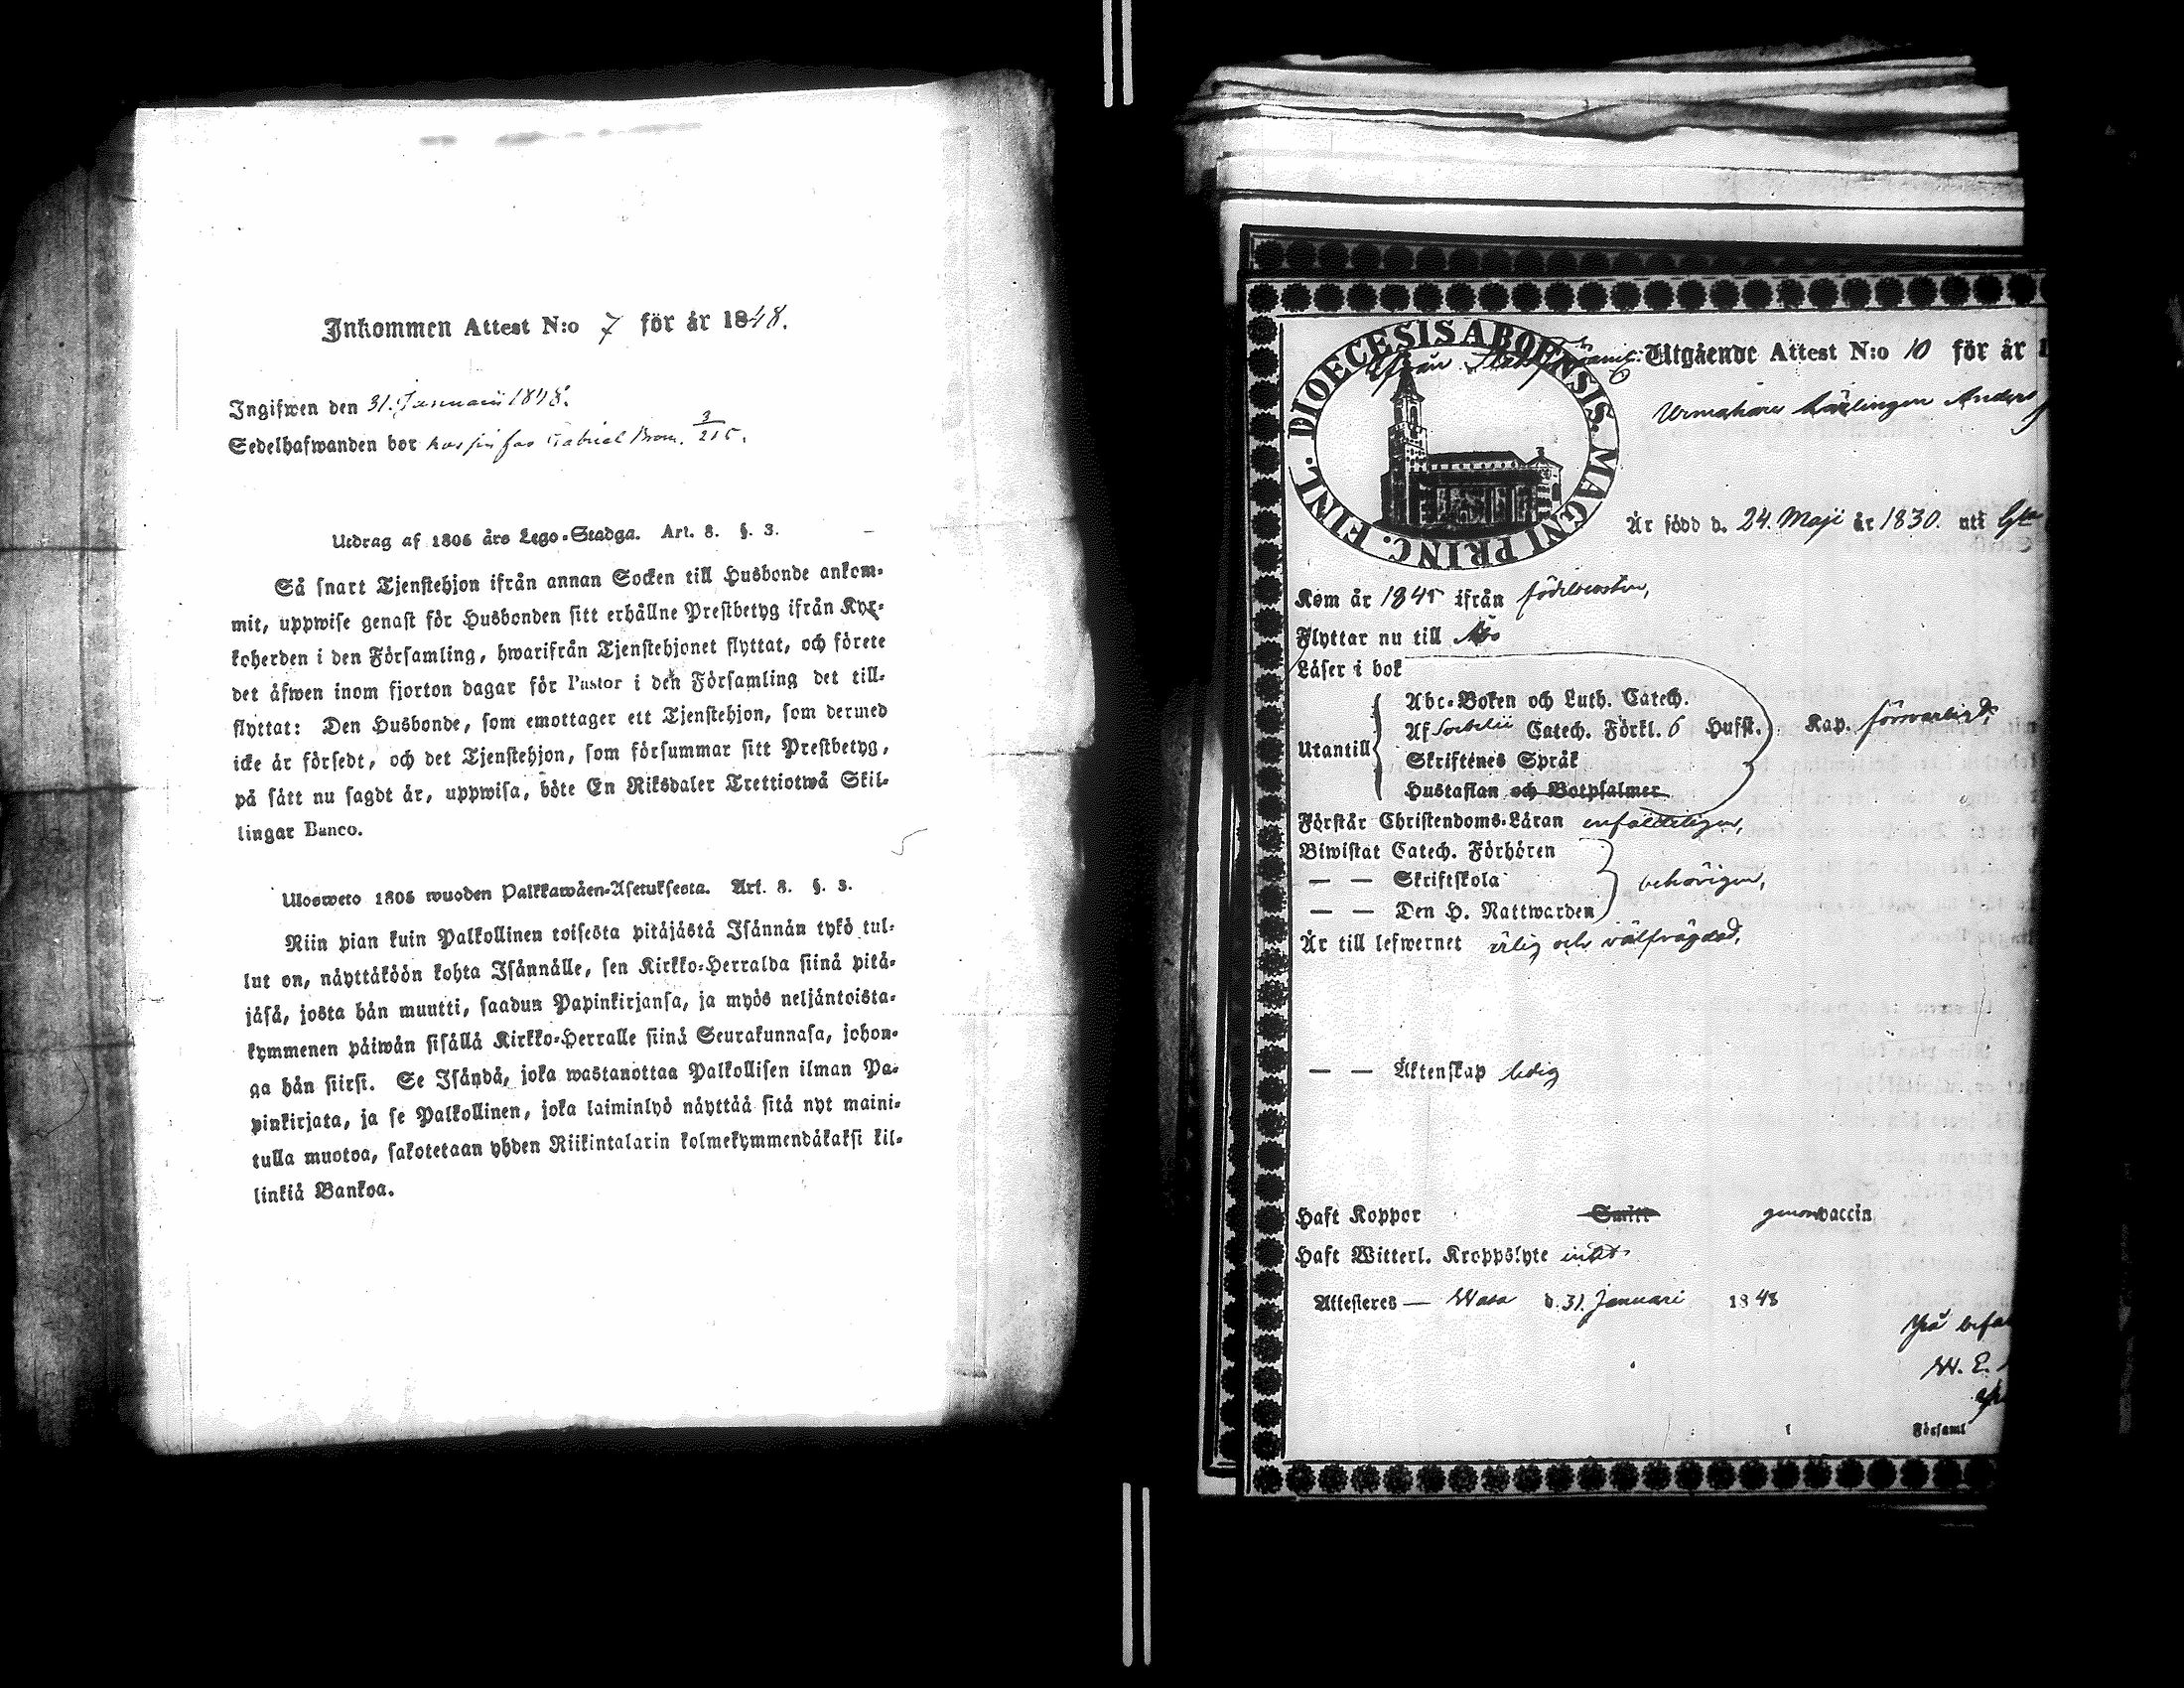 Inkommen Attest N:o 7 för år 1848.
Ingifwen den 31. Januarii 1848.
Sedelhafwanden bor hos sin far Gabriel 3/215.
Utdrag af 1805 års Lego-Stadga. Art. 8. §. 3.
Så snart Tjenstehjon ifrån annan Socken till Husbonde ankom-
mit, uppwise genast för Husbonden sitt erhållne Prestbetyg ifrån Kyr-
koherden i den Församling, hwarifrån Tjenstehjonet flyttat, och förete
det äfwen inom fjorton dagar för Pastor i den Församling det till-
flyttat: Den Husbonde, som emottager ett Tjenstehjon, som dermed
icke är försedt, och det Tjenstehjon, som försummar sitt Prestbetyg,
på sätt nu sagdt är, uppwisa, böte En Riksdaler Trettiotwå Skil-
lingar Banco.
Ulosweto 1805 wuoden Palkkawäen-Asetuksesta. Art. 8. §. 3.
Niin pian kuin Palkollinen toisesta pitäjästä Isännän tykö tul-
lut on, näyttäköön kohta Isännälle, sen Kirkko-Herralda siinä pitä-
jäsä, josta hän muutti, saadun Papinkirjansa, ja myös neljäntoista-
kymmenen päiwän sisällä Kirkko-Herralle siinä Seurakunnasa, johon-
ga hän siirsi. Se Isändä, joka wastanottaa Palkollisen ilman Pa-
pinkirjata, ja se Palkollinen, joka laiminlyö näyttää sitä nyt maini-
tulla muotoa, sakotetaan yhden Riikintalarin kolmekymmendäkaksi kil-
linkiä Bankoa.
DIOECESIS ABOENSIS. MAGNI PRINC. FINL.
Utgående Attest N:o 10 för år 1
Urmakare Lärlingen Anders
Är född d. 24. Maji år 1830. uti
Kom år 1845 ifrån födelseorten,
Flyttar nu till Åbo
Läser i bok
Abc-Boken och Luth. Catech.
Utantill Af Sebelii Catech. Förkl. 6 Hufst. Kap. försvarligt,
Skriftenes Språk
Hustaflan och Botpsalmer
Förstår Christendoms-Läran enfaldeligen,
Biwistat Catech. Förhören
— — Skriftskola behörigen,
— — Den H. Nattwarden
Är till lefwernet ärlig och välfrägdad,
— — Äktenskap ledig
Haft Koppor Smitt genom vaccin
Haft Witterl. Kroppslyte intet
Attesteres — Wasa d. 31. Januari 1848
På befa
W. E.
Församl